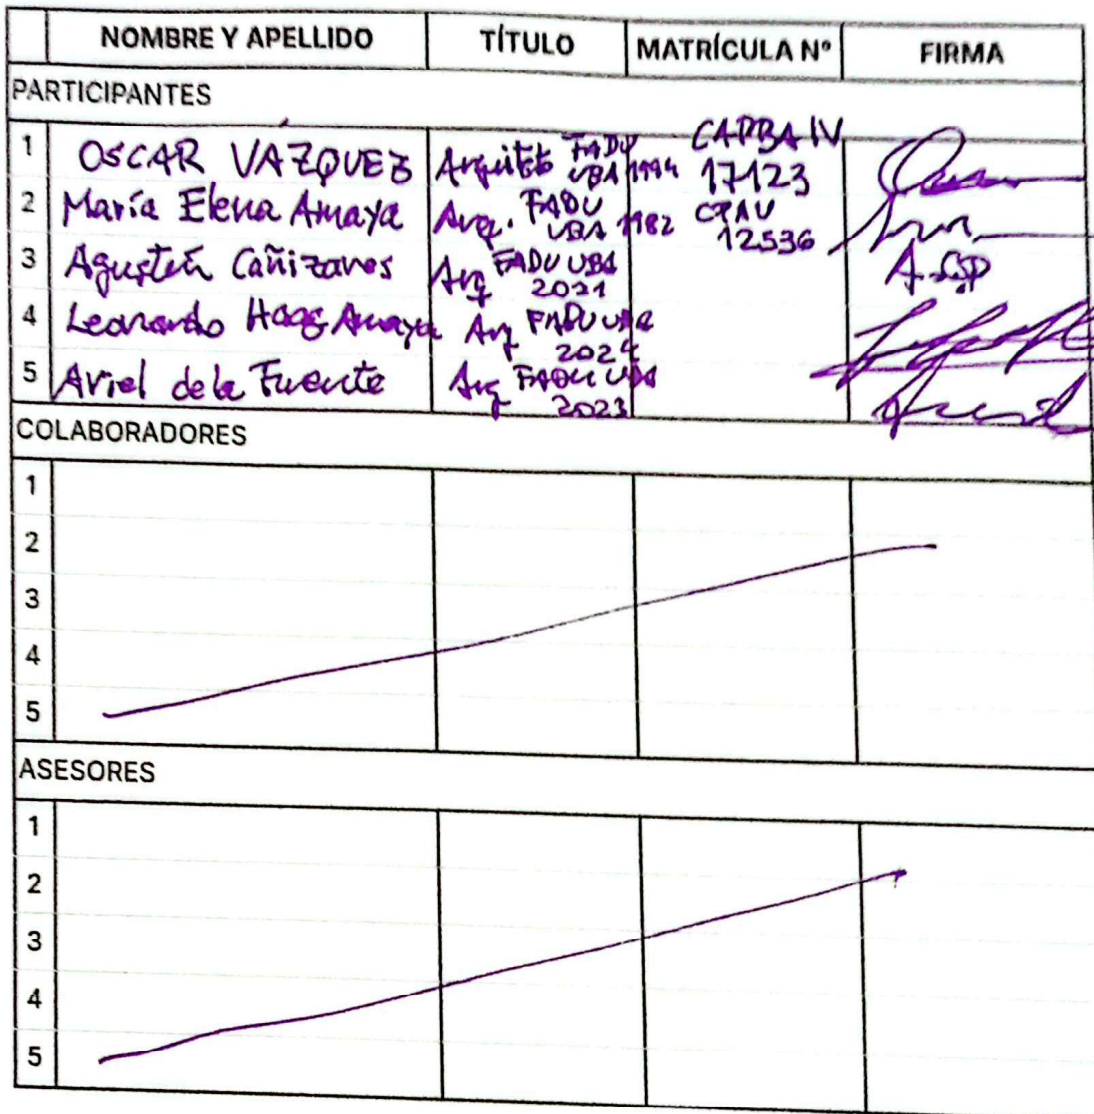 NOMBRE Y APELLIDO TÍTULO MATRÍCULA Nº FIRMA
PARTICIPANTES
1 OSCAR VAZQUEZ Arquitecto FADU UBA 1994 CAPBA IV 17123
2 María Elena Amaya Arq. FADU UBA 1982 CPAU 12536
3 Agustín Cañizares Arq FADU UBA 2021
4 Leonardo Haag Amaya Arq FADU UBA 2024
5 Ariel de la Fuente Arq FADU UBA 2023
COLABORADORES
1
2
3
4
5
ASESORES
1
2
3
4
5